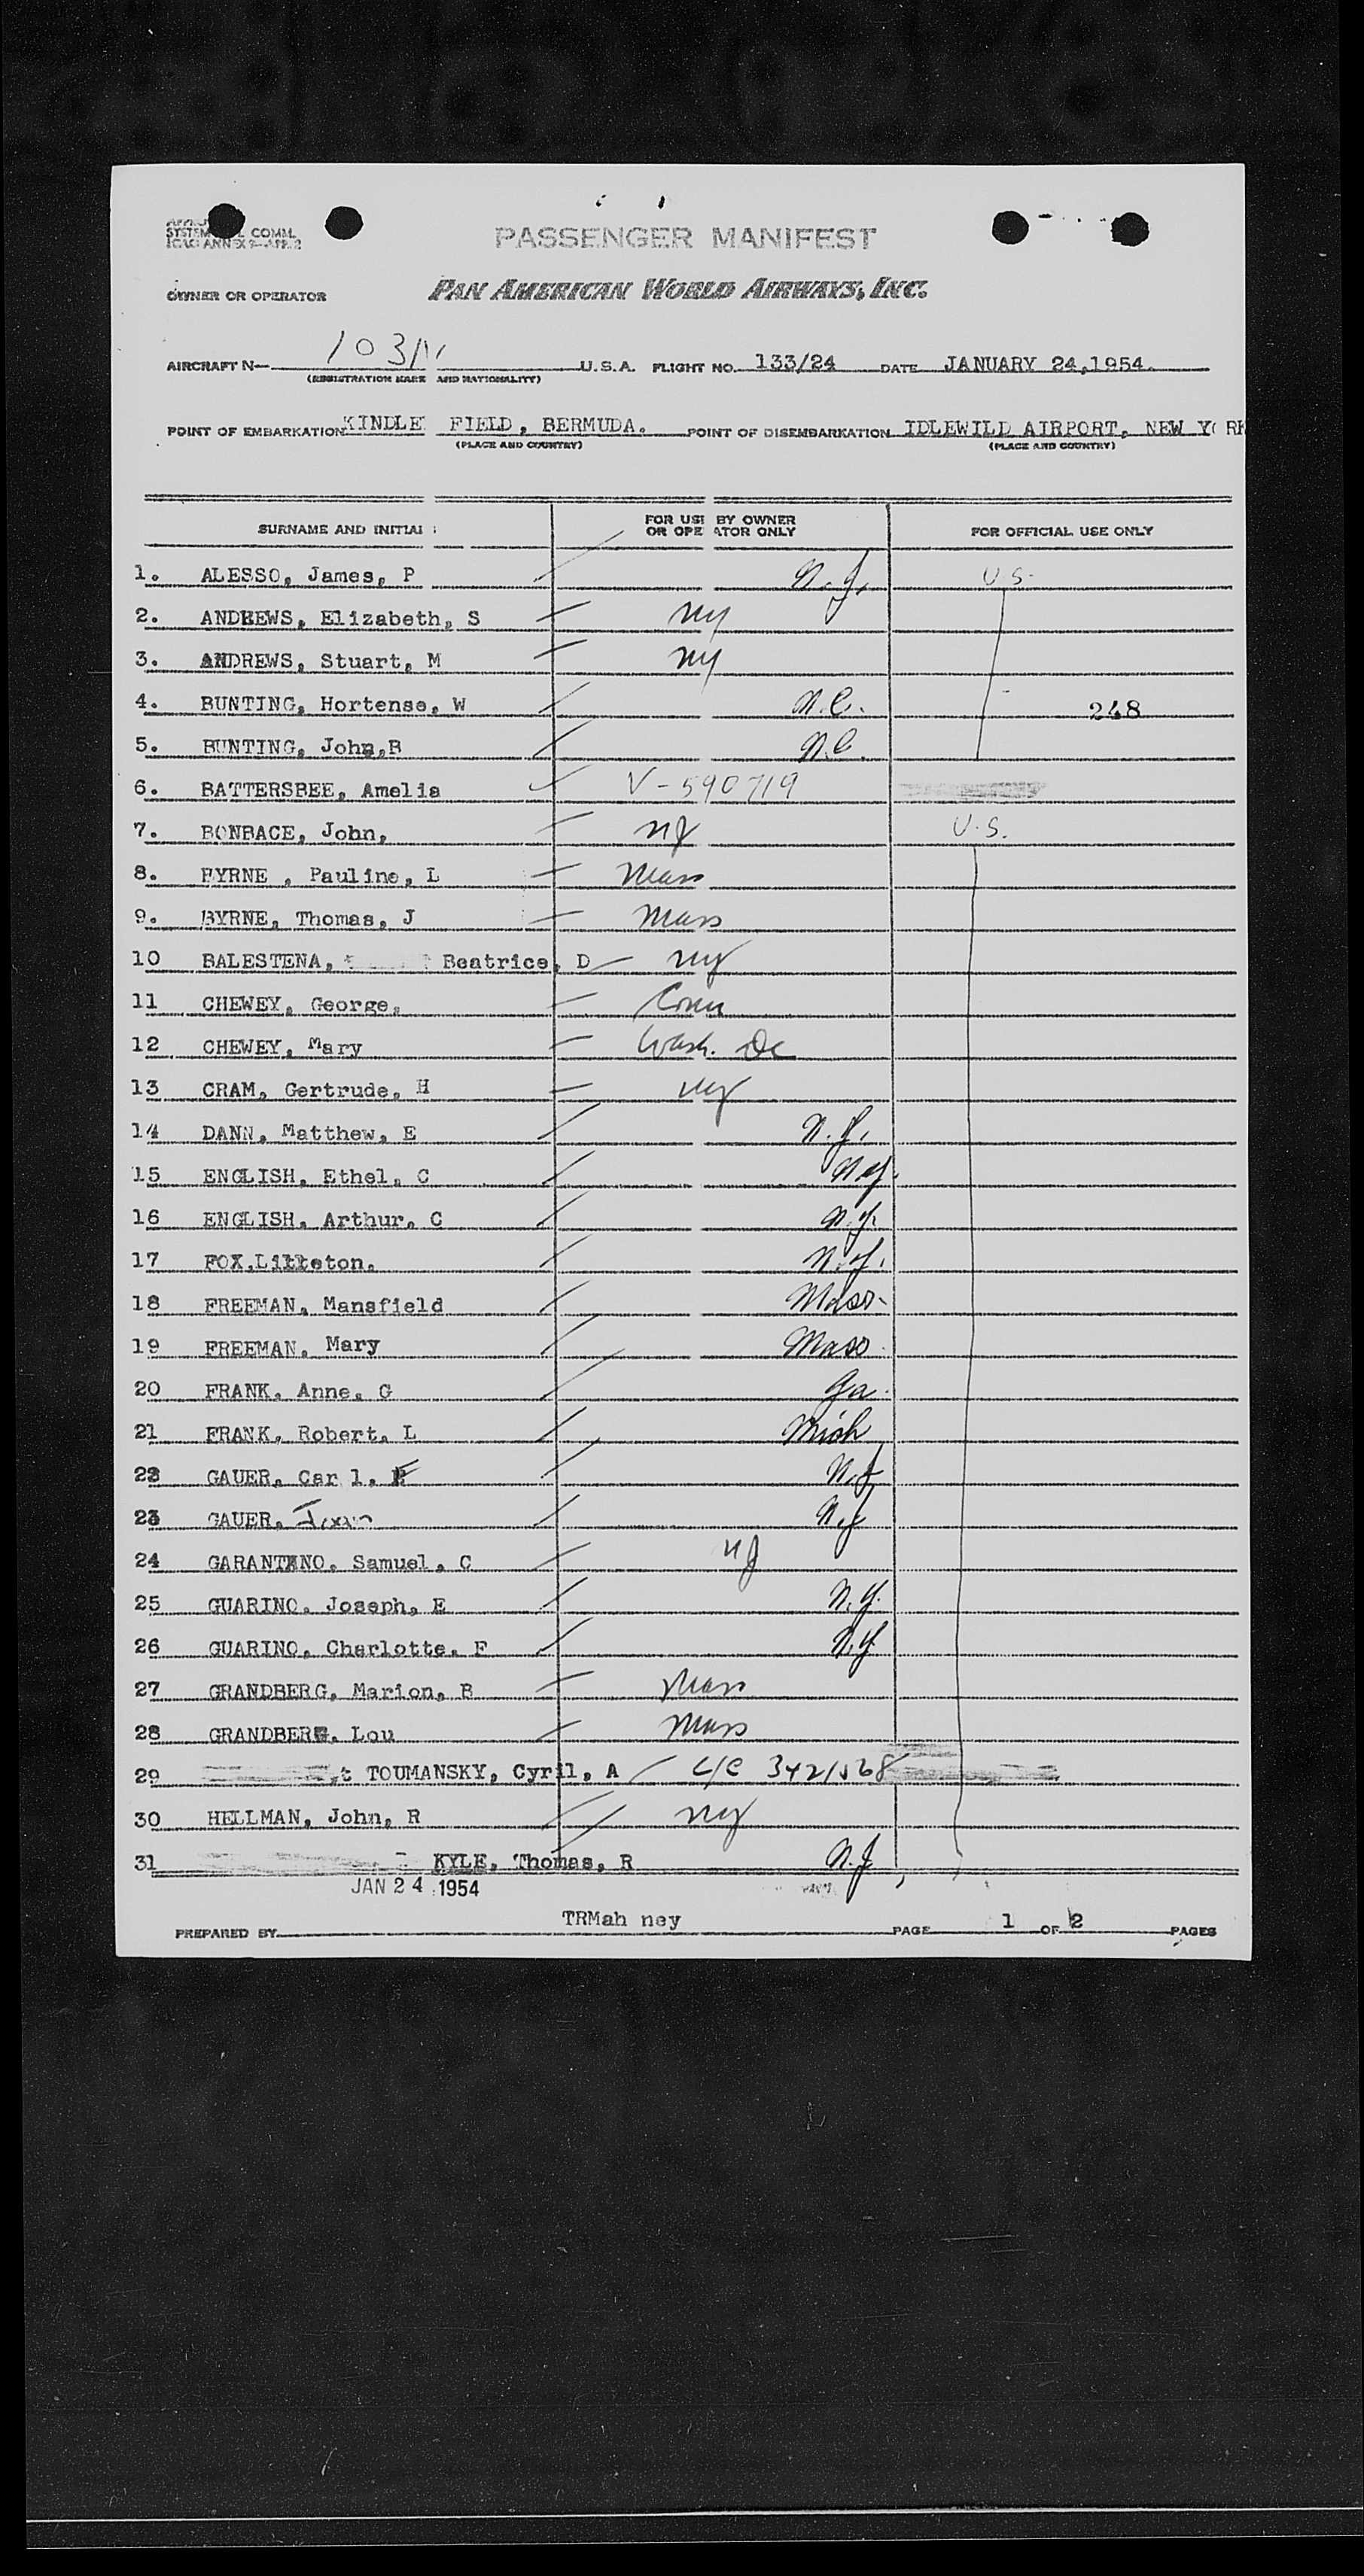 SYSTEM COMM.
ICAO ANNEX 9-APP. 2
PASSENGER MANIFEST
OWNER OR OPERATOR PAN AMERICAN WORLD AIRWAYS, INC.
AIRCRAFT N— 1031V U.S.A. FLIGHT NO. 133/24 DATE JANUARY 24,1954.
(REGISTRATION MARK AND NATIONALITY)
POINT OF EMBARKATION KINDLE FIELD, BERMUDA. POINT OF DISEMBARKATION IDLEWILD AIRPORT, NEW YORK
(PLACE AND COUNTRY) (PLACE AND COUNTRY)
SURNAME AND INITIAL FOR USE BY OWNER OR OPERATOR ONLY FOR OFFICIAL USE ONLY
1. ALESSO, James, P N.J. U.S.
2. ANDREWS, Elizabeth, S NY
3. ANDREWS, Stuart, M NY
4. BUNTING, Hortense, W N.C. 248
5. BUNTING, John,B N.C.
6. BATTERSBEE, Amelia V-590719
7. BONBACE, John, NJ U.S.
8. BYRNE , Pauline, L Mass
9. BYRNE, Thomas, J Mass
10 BALESTENA, Beatrice, D NY
11 CHEWEY, George, Conn
12 CHEWEY, Mary Wash. DC
13 CRAM, Gertrude, H NY
14 DANN, Matthew, E N.Y.
15 ENGLISH, Ethel, C N.Y.
16 ENGLISH, Arthur, C N.Y.
17 FOX,Litteton. N.Y.
18 FREEMAN, Mansfield Mass.
19 FREEMAN, Mary Mass.
20 FRANK, Anne, G Ga.
21 FRANK, Robert, L Mich
22 GAUER, Carl, F N.J
23 GAUER, N.J
24 GARANTANO, Samuel, C NJ
25 GUARINO, Joseph, E N.Y.
26 GUARINO, Charlotte, F N.Y.
27 GRANDBERG, Marion, B Mass
28 GRANDBERG, Lou Mass
29 TOUMANSKY, Cyril, A
30 HELLMAN, John, R NY
31 KYLE, Thomas, R N.J
JAN 24 1954
PREPARED BY TRMah ney PAGE 1 OF 2 PAGES